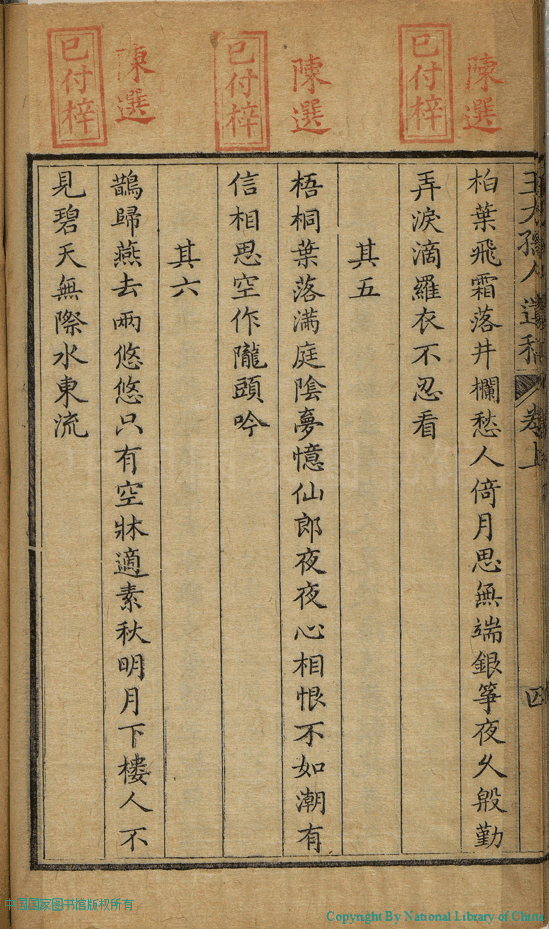 陳選
已付梓
陳選
已付梓
陳選
已付梓
卷上
四
柏葉飛霜落井欄愁人倚月思無端銀箏夜久殷勤
弄淚滴羅衣不忍看
其五
梧桐葉落滿庭陰夢憶仙郎夜夜心相恨不如潮有
信相思空作隴頭吟
其六
鵲歸燕去兩悠悠只有空牀適素秋明月下樓人不
見碧天無際水東流
中国国家图书馆版权所有
Copyright By National Library of China